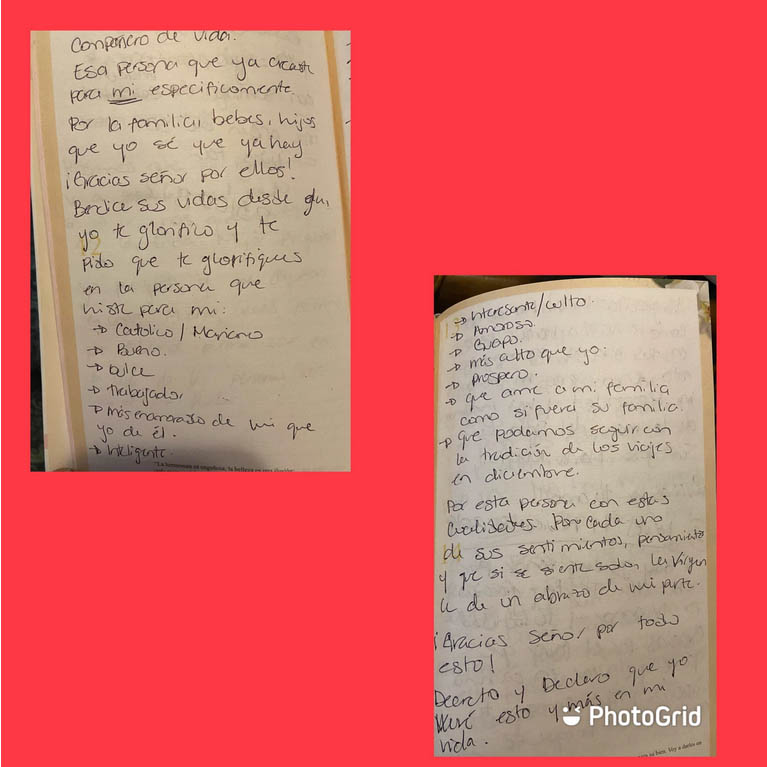 Compañero de vida.
Esa persona que ya creaste
para mi especificamente.
Por la familia, bebes, hijos
que yo sé que ya hay
¡Gracias señor por ellos!
Bendice sus vidas desde
yo te glorifico y te
pido que te glorifiques
en la persona que
histe para mi:
→ Catolico / Mariano
→ Bueno.
→ Dulce
→ trabajador
→ más enamorado de mi que
yo de él.
→ Inteligente.
→ Interesante/culto.
→ Amoroso.
→ Guapo.
→ más alto que yo.
→ prospero.
→ que ame a mi familia
como si fuera su familia
→ que podamos seguir con
la tradición de los viajes
en diciembre.
Por esta persona con estas
cualidades. Por cada uno
de sus sentimientos, pensamientos
y que si se siente solo, la Virgen
le de un abrazo de mi parte.
¡Gracias Señor por todo
esto!
Decreto y Declaro que yo
esto y más en mi
vida.
PhotoGrid